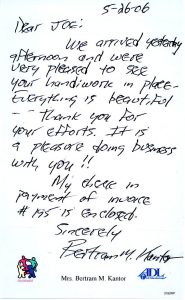 5-26-06
Dear Joe:
We arrived yesterday
afternoon and were
very pleased to see
your handiwork in place-
Everything is beautiful
-- Thank you for
your efforts. It is
a pleasure doing business
with you!!
My check in
payment of invoice
# 195 is enclosed.
Sincerely
Bertram M. Kantor
Mrs. Bertram M. Kantor
ADL